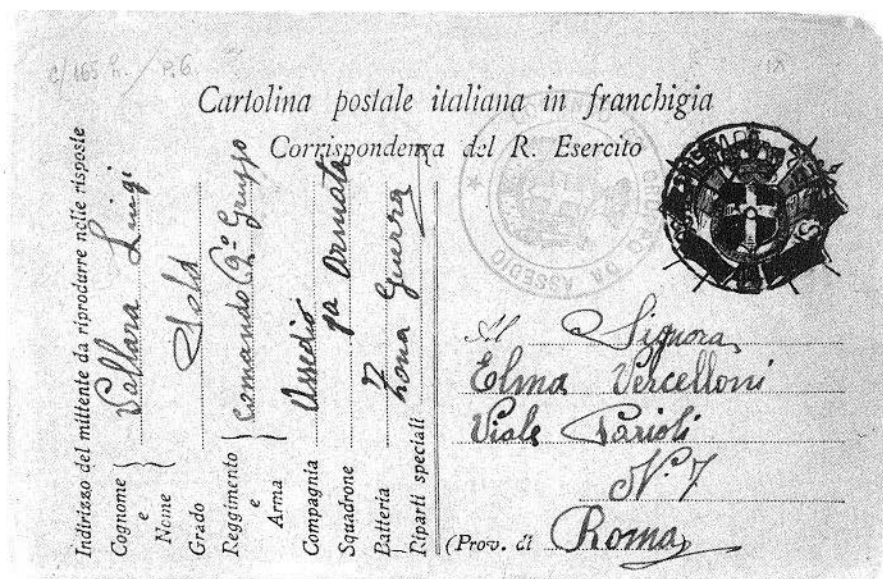 c/165 R. / P.6.
Cartolina postale italiana in franchigia
Corrispondenza del R. Esercito
GRUPPO DA ASSEDIO
Indirizzo del mittente da riprodurre nelle risposte
Cognome e Nome } Vallara Luigi
Grado Sold
Reggimento e Arma } Comando 9º Gruppo
Compagnia Assedio
Squadrone 1a Armata
Batteria Z
Riparti speciali Zona Guerra
Al Signora
Elma Vercelloni
Viale Parioli
Nº 7
(Prov. di Roma